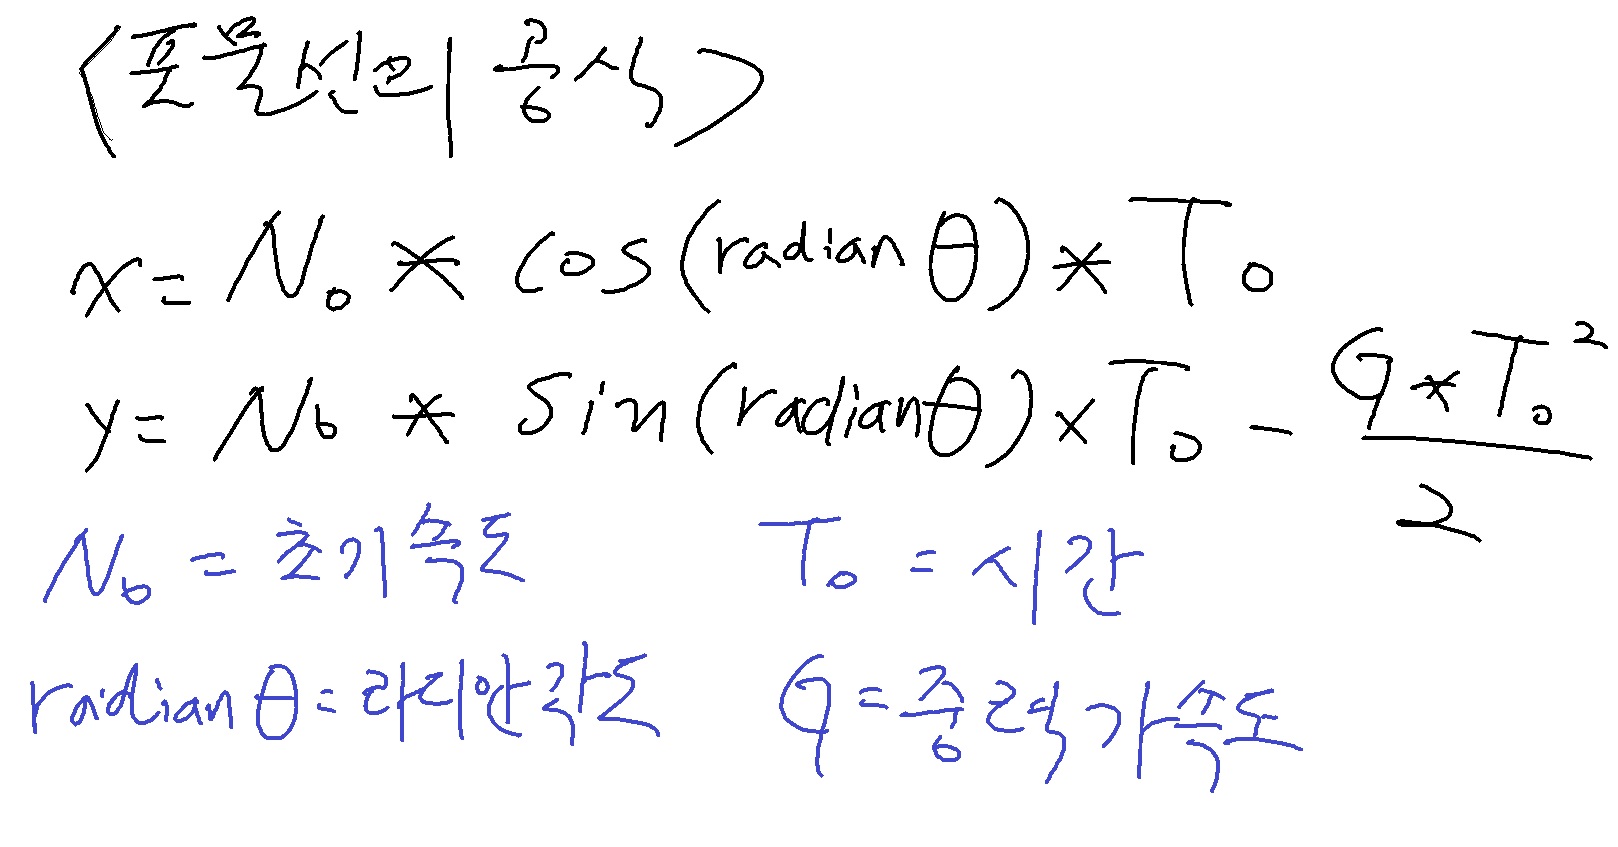 <포물선의 공식>
x = N₀ * cos(radian θ) * T₀
y = N₀ * sin(radian θ) × T₀ - (G * T₀²) / 2
N₀ = 초기속도 T₀ = 시간
radian θ = 라디안각도 G = 중력가속도